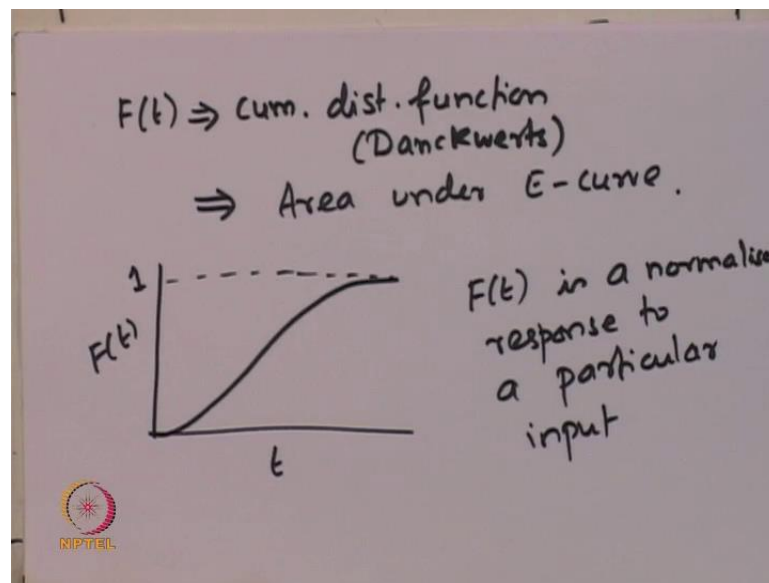 F(t) ⇒ cum. dist. function
(Danckwerts)
⇒ Area under E-curve.
1
F(t)
t
F(t) is a normalise
response to
a particular
input
NPTEL